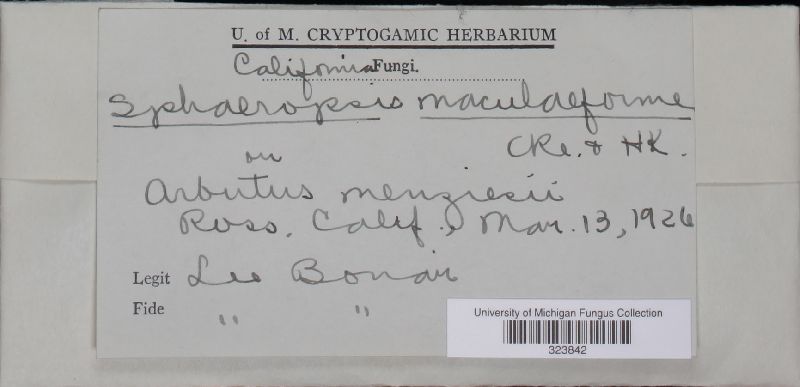 U. of M. CRYPTOGAMIC HERBARIUM
California Fungi.
Sphaeropsis maculaeforme
Cke. & HK.
on
Arbutus menziesii
Ross, Calif., Mar. 13, 1926
Legit Lee Bonar
Fide " "
University of Michigan Fungus Collection
323842